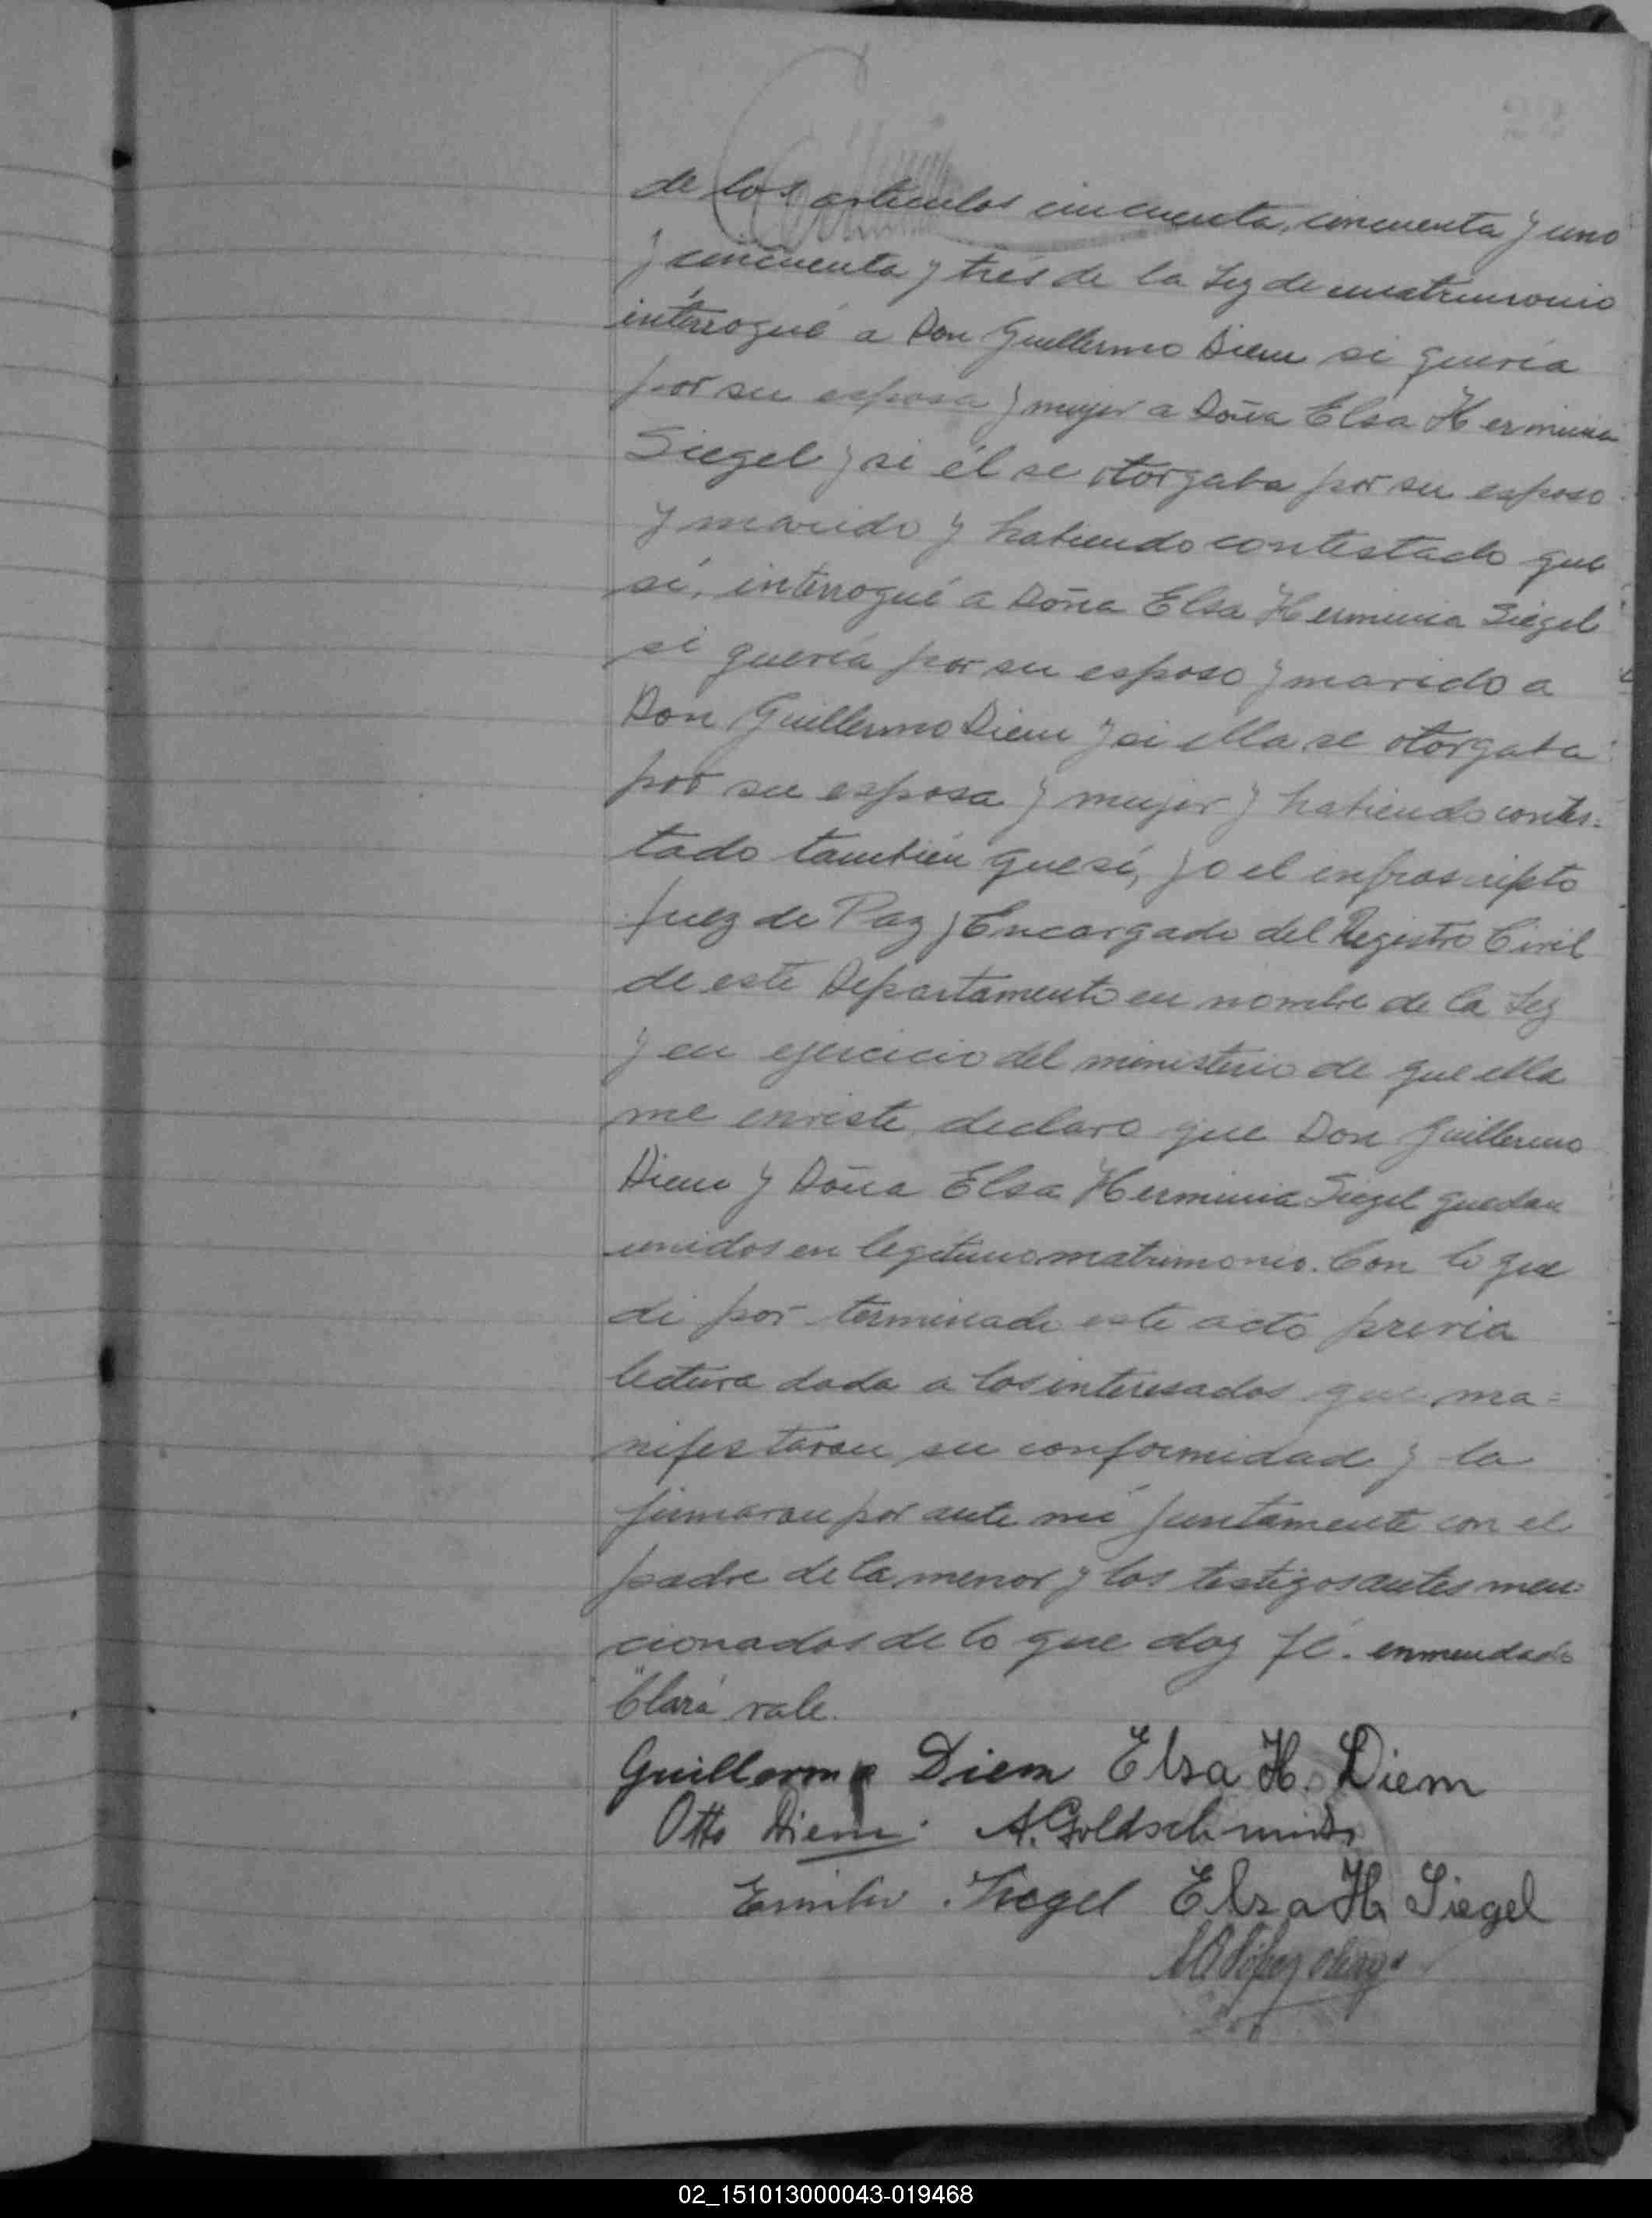 de los artículos cincuenta, cincuenta y uno
y cincuenta y tres de la Ley de matrimonio
interrogué a Don Guillermo Diem si quería
por su esposa y mujer a Doña Elsa Herminia
Siegel y si él se otorgaba por su esposo
y marido y habiendo contestado que
sí, interrogué a Doña Elsa Herminia Siegel
si quería por su esposo y marido a
Don Guillermo Diem y si ella se otorgaba
por su esposa y mujer y habiendo contes=
tado también que sí, yo el infrascripto
Juez de Paz y Encargado del Registro Civil
de este Departamento en nombre de la Ley
y en ejercicio del ministerio de que ella
me enviste, declaro que Don Guillermo
Diem y Doña Elsa Herminia Siegel quedan
unidos en legítimo matrimonio. Con lo que
di por terminado este acto previa
lectura dada a los interesados que ma=
nifestaron su conformidad y la
firmaron por ante mí juntamente con el
padre de la menor y los testigos antes men=
cionados de lo que doy fé. enmendado
"Clara" vale.
Guillermo Diem Elsa H. Diem
Otto Diem. A. Goldschmidt
Emilio Siegel Elsa H. Siegel
López
02_151013000043-019468